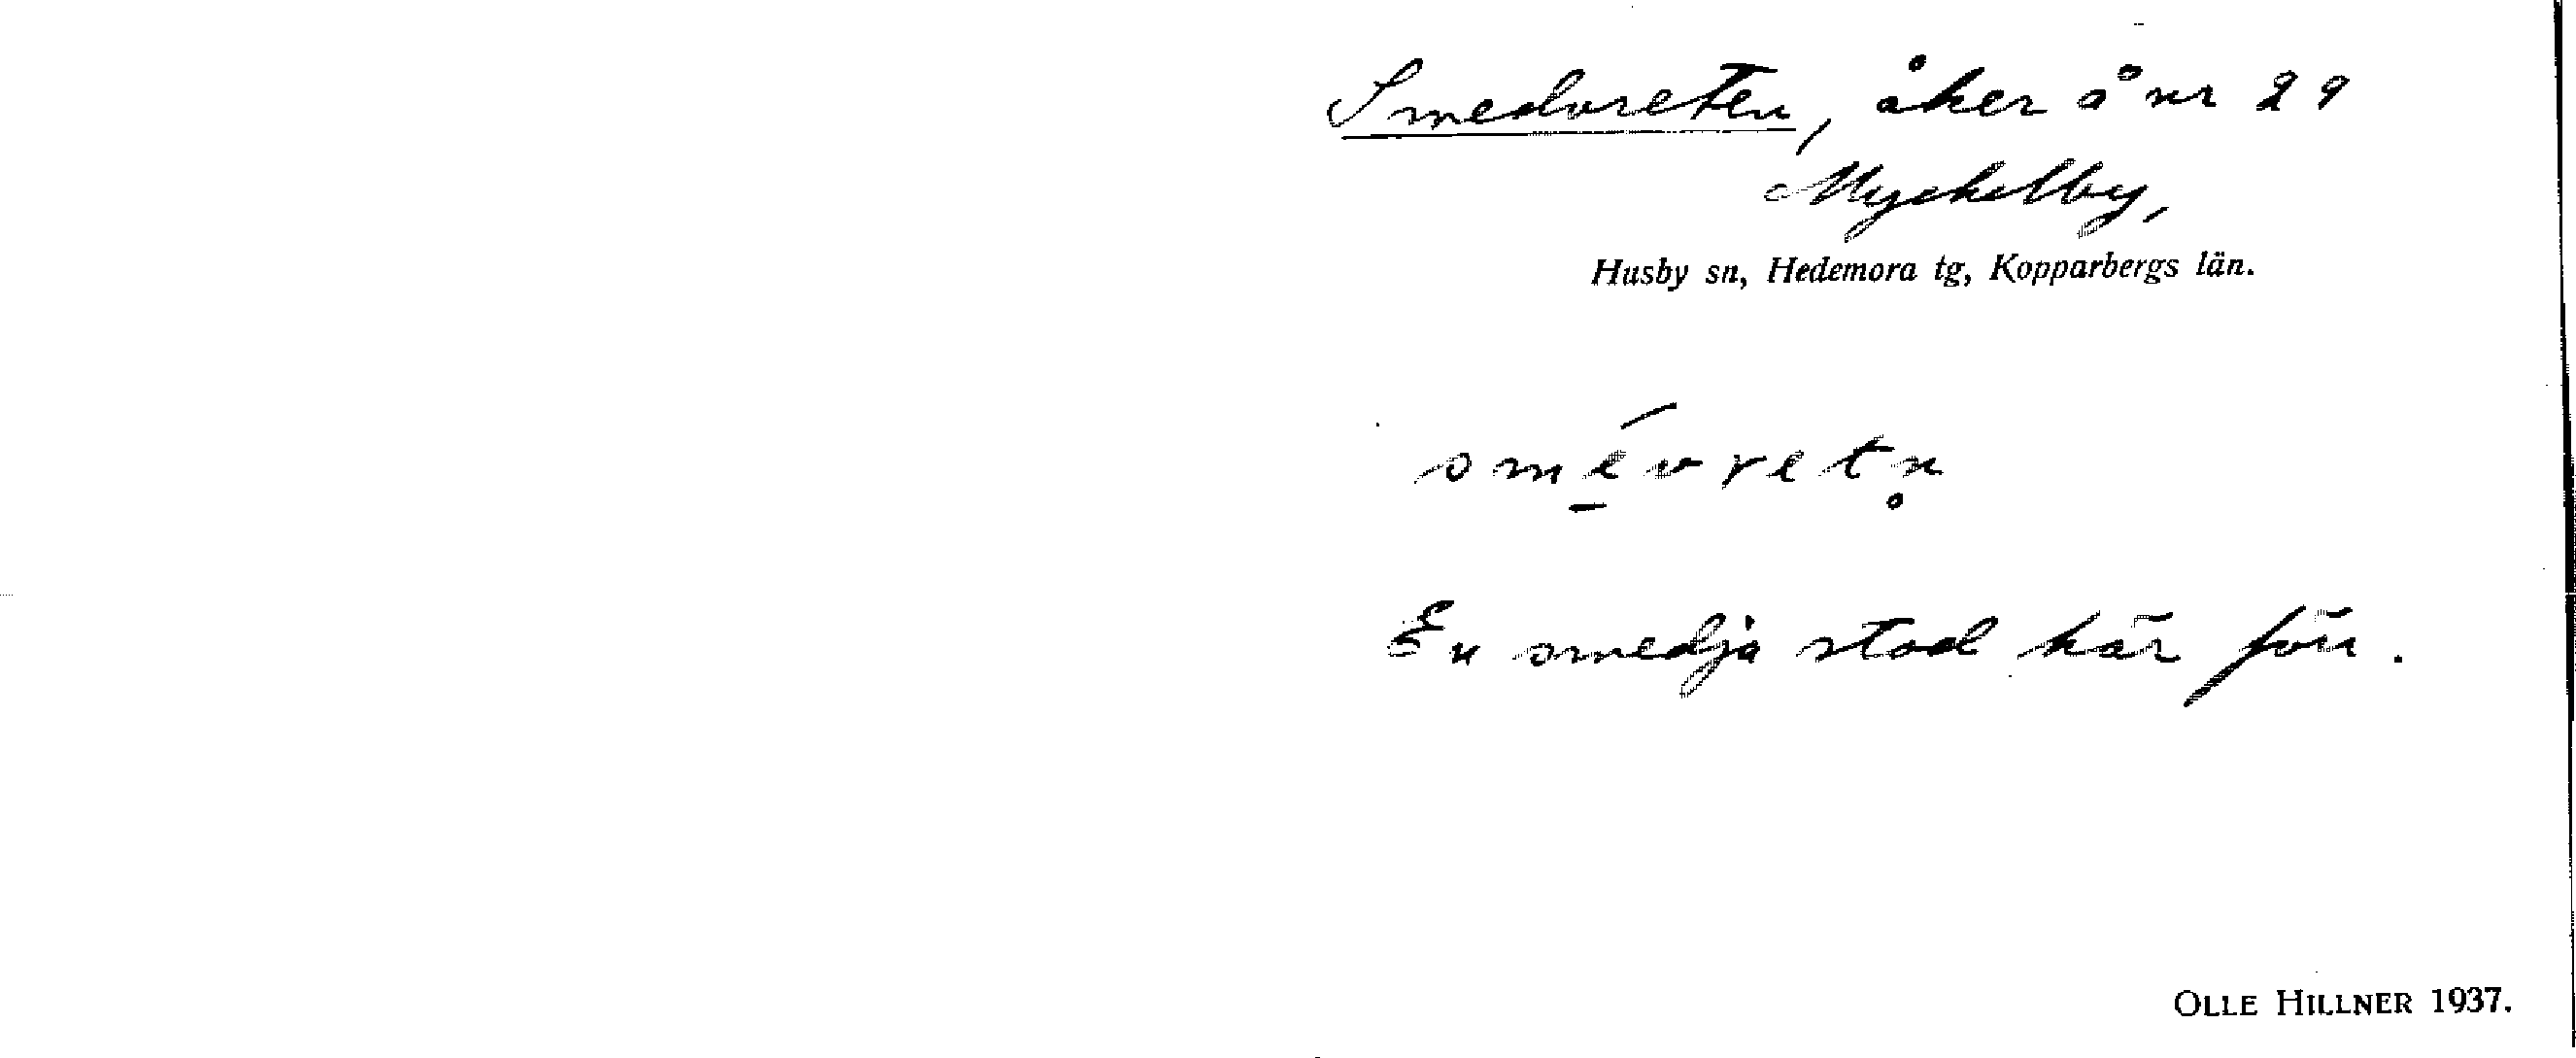 Smedvreten, åker å nr 29
Myckelby,
Husby sn, Hedemora tg, Kopparbergs län.
smé̱vretn̥
En smedja stod här förr.
OLLE HILLNER 1937.